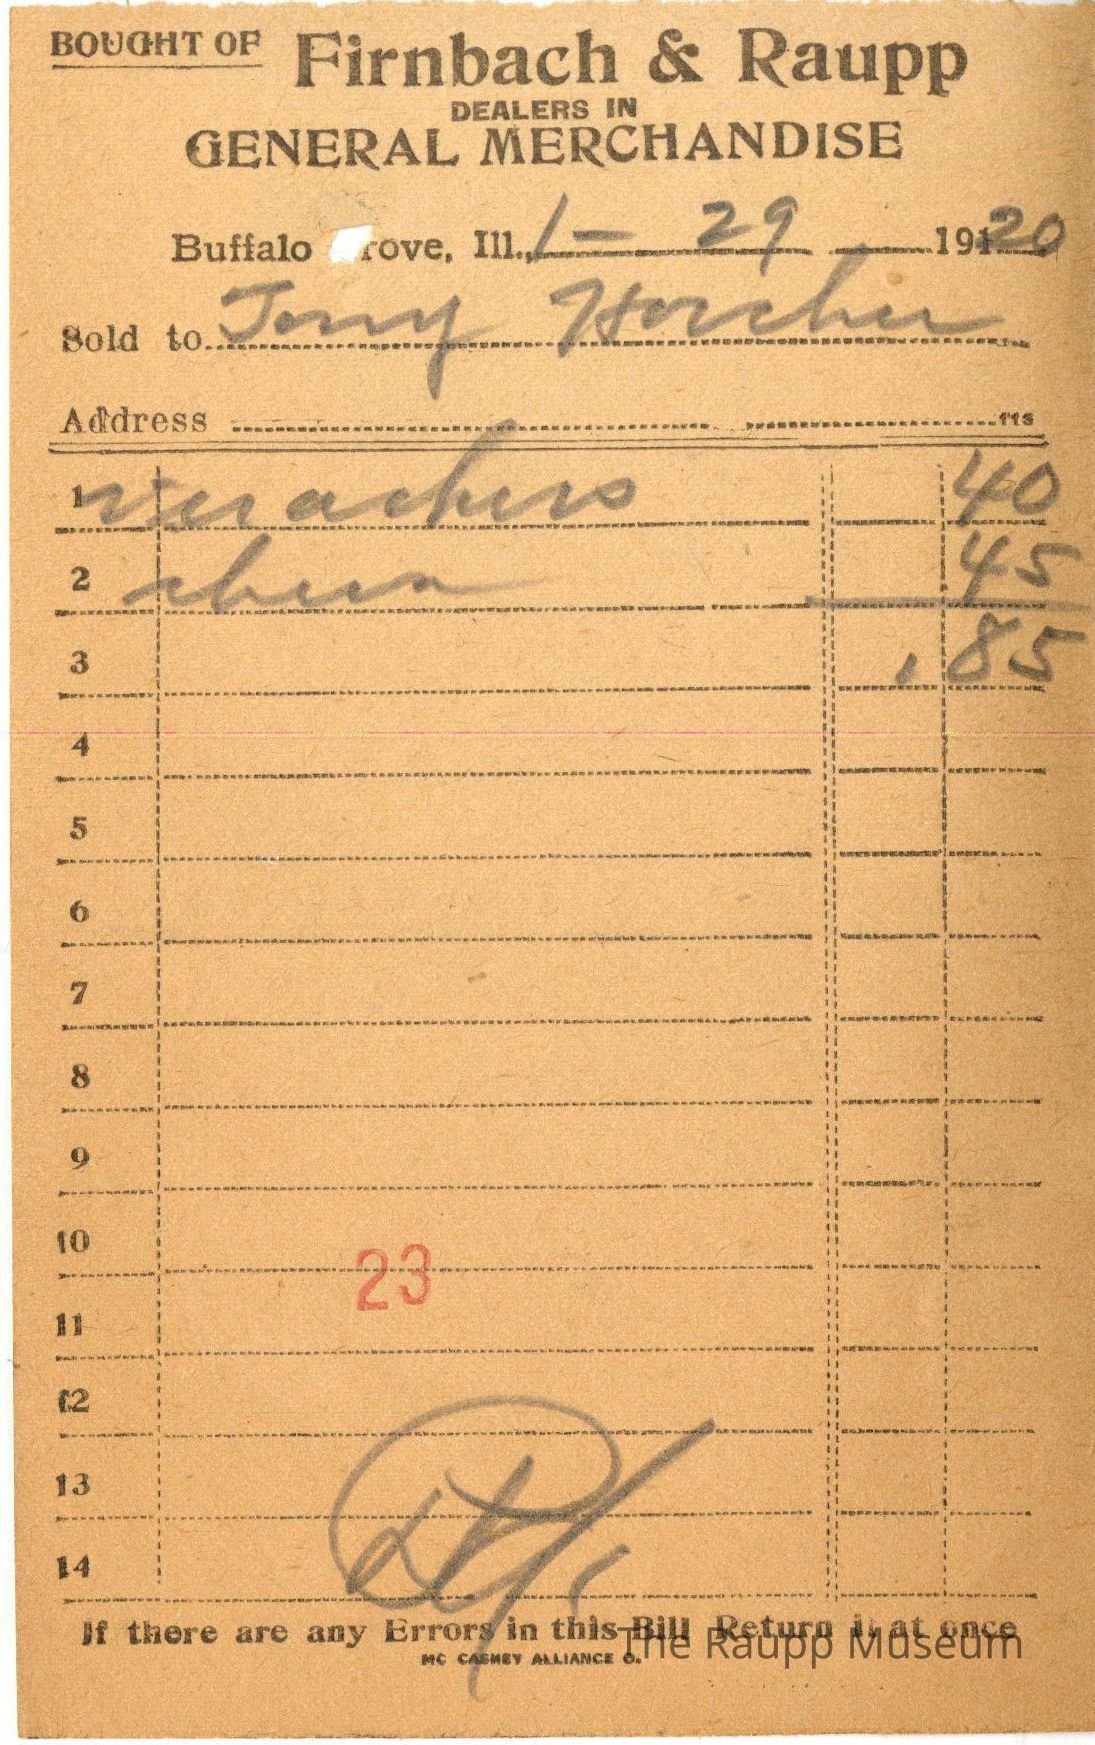 BOUGHT OF Firnbach & Raupp
DEALERS IN
GENERAL MERCHANDISE
Buffalo rove, Ill., 1 – 29 19120
Sold to Tony Horcher
Address
1 40
2 45
3 .85
4
5
6
7
8
9
10
23
11
12
13
14
If there are any Errors in this Bill Return it at once
MC CASKEY ALLIANCE O.
The Raupp Museum